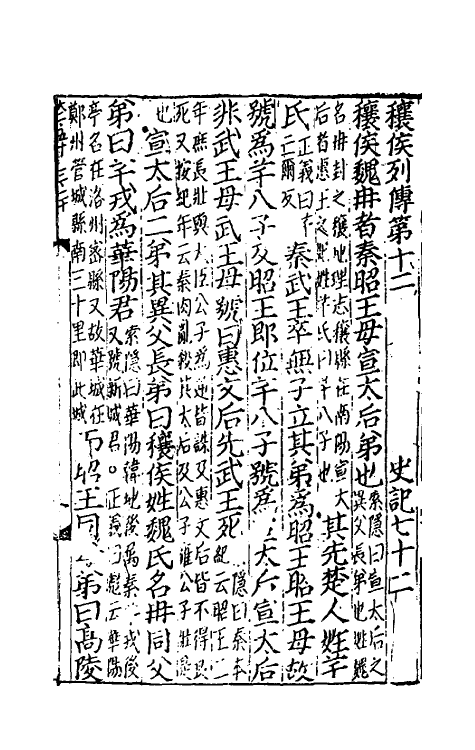 穰侯列傳第十二 史記七十二
穰侯魏冉者秦昭王母宣太后弟也索隱曰宣太后之異父長弟也姓魏
名冉封之穰地理志穰縣在南陽宣太后者惠王之妃姓芊氏曰芊八子也其先楚人姓芊
氏正義曰亡爾反秦武王卒無子立其弟爲昭王昭王母故
號爲芊八子及昭王即位芊八子號爲宣太后宣太后
非武王母武王母號曰惠文后先武王死索隱曰秦本紀云昭王二
年庶長壯與大臣公子爲逆皆誅及惠文后皆不得良死又按紀年云秦內亂殺其太后及公子雍公子壯是
也宣太后二弟其異父長弟曰穰侯姓魏氏名冉同父
弟曰芊戎爲華陽君索隱曰華陽韓地後屬秦戎後又號新城君。正義曰彪云華陽
亭名在洛州密縣又故華城在鄭州管城縣南三十里即此城 王同弟曰高陵